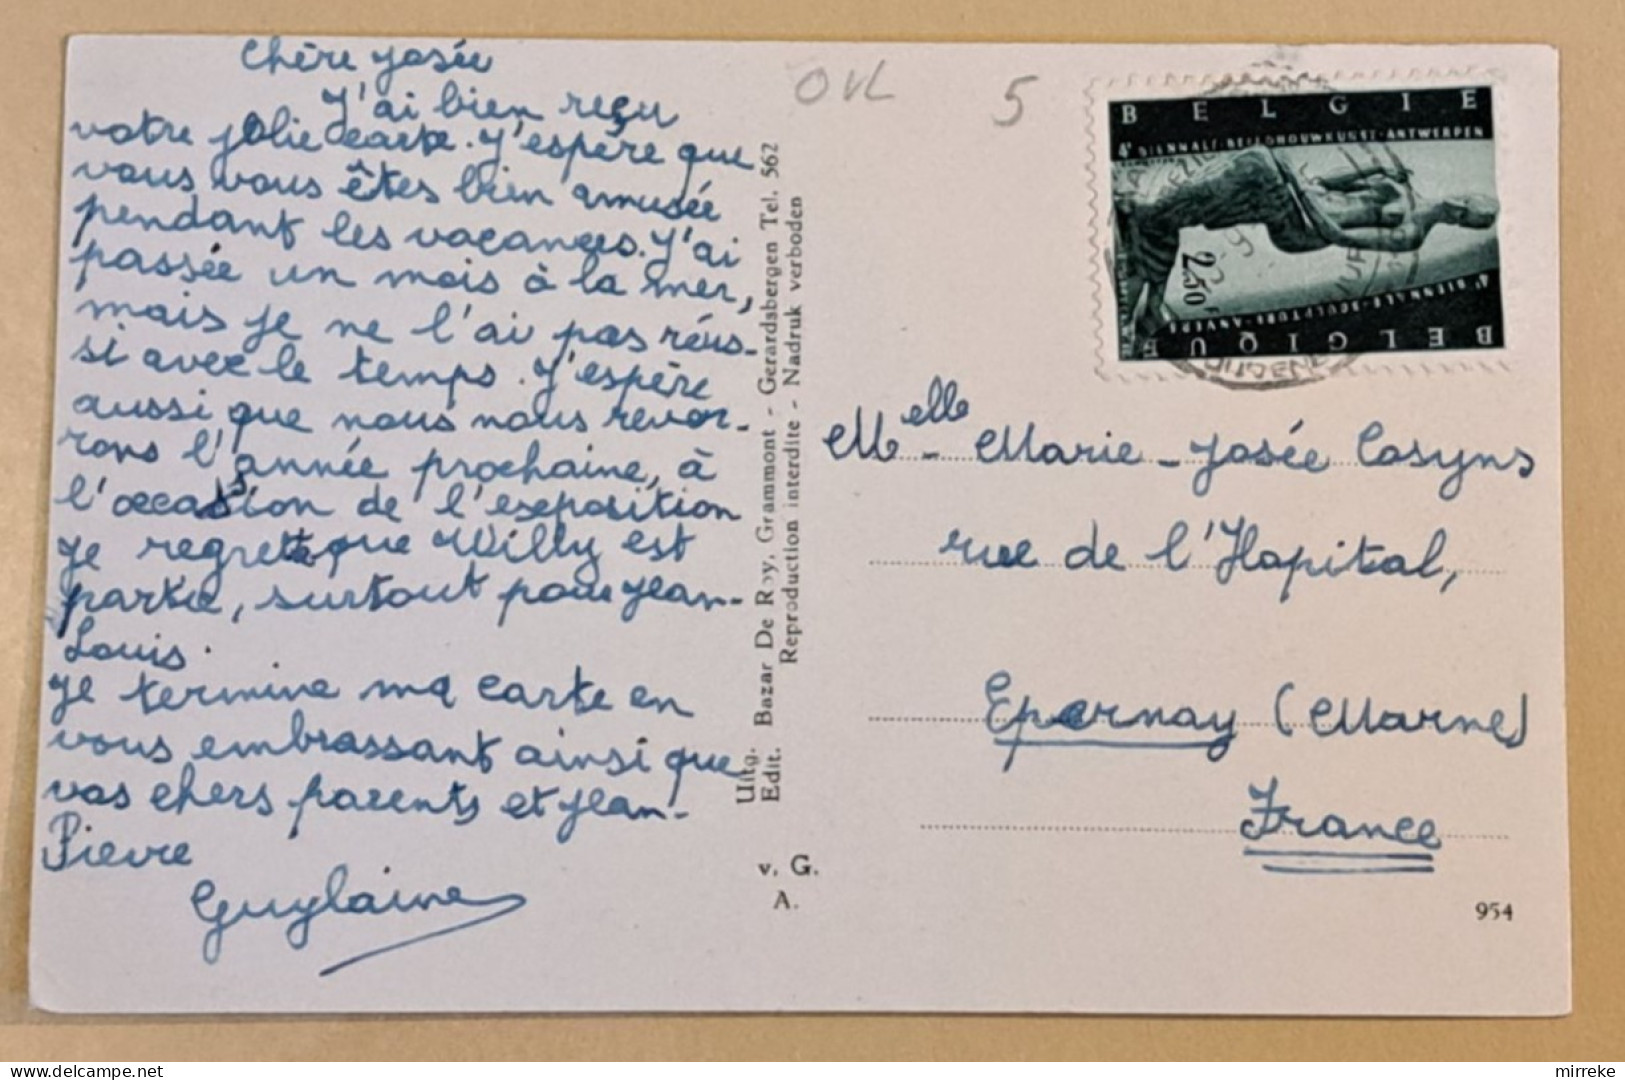 Chère Josée
J'ai bien reçu
votre jolie carte. J'espère que
vous vous êtes bien amusée
pendant les vacances. J'ai
passée un mois à la mer,
mais je ne l'ai pas réus-
si avec le temps. J'espère
aussi que nous nous rever-
rons l'année prochaine, à
l'occasion de l'exposition
Je regrette que Willy est
partie, surtout pour Jean-
Louis.
Je termine ma carte en
vous embrassant ainsi que
vos chers parents et Jean-
Pierre
Guylaine
OVL 5
Uitg. Bazar De Roy, Grammont - Gerardsbergen Tel. 562
Edit. Reproduction interdite - Nadruk verboden
v. G.
A.
BELGIE
4e BIENNALE-BEELDHOUWKUNST-ANTWERPEN
2,50
4e BIENNALE-SCULPTURE-ANVERS
BELGIQUE
Melle - Marie - Josée Cosyns
rue de l'Hopital,
Epernay (Marne)
France
954
mirreke